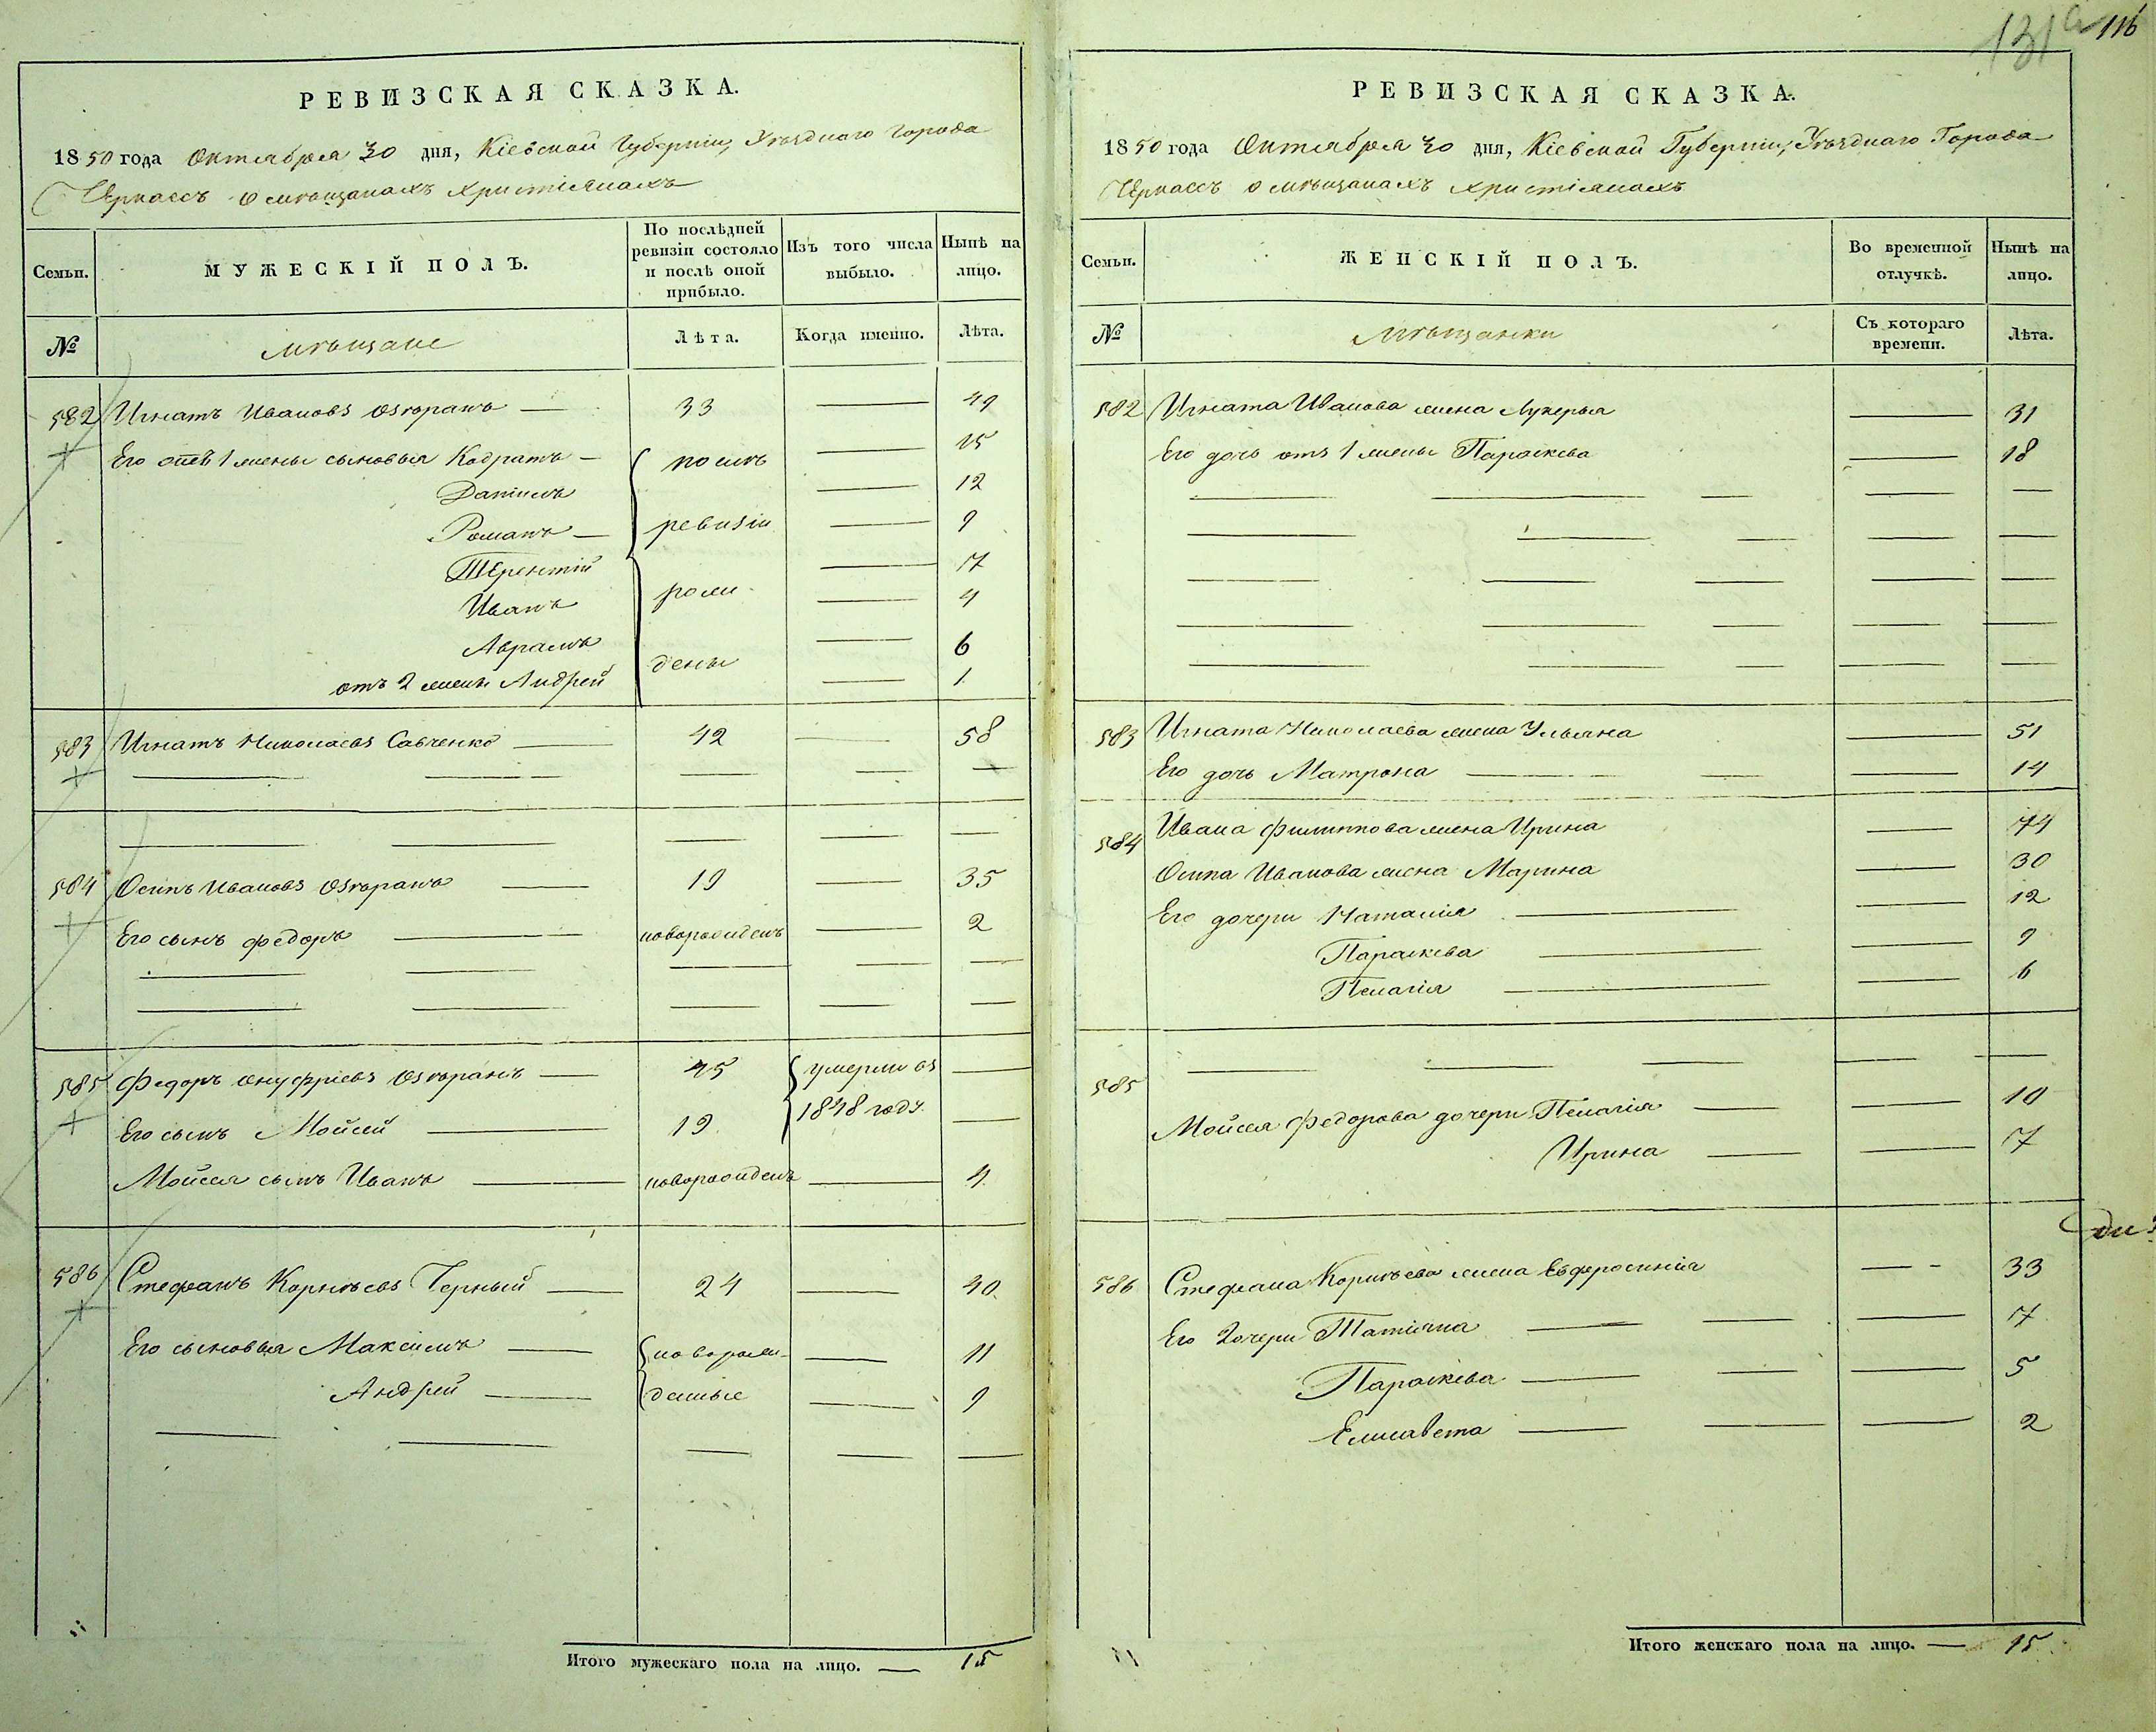 131
116
РЕВИЗСКАЯ СКАЗКА.
1850 года Октября 30 дня, Кіевской Губерніи, Уѣзднаго Города
Черкассъ о мѣщанахъ христіянахъ
Семьи.
МУЖЕСКІЙ ПОЛЪ.
По послѣдней ревизіи состояло и послѣ оной прибыло.
Изъ того числа выбыло.
Нынѣ на лицо.
№ мѣщане Лѣта. Когда именно. Лѣта.
582 Игнатъ Ивановъ 33 — 49
Его отъ 1 жены сыновья Кодратъ — послѣ — 15
Данилъ — 12
Романъ — ревизіи — 9
Терентій — 7
Иванъ рож — 4
Абрамъ — 6
отъ 2 жены Андрей дены — 1
583 Игнатъ Николаевъ Савченко — 42 — 58
584 Осипъ Ивановъ — 19 — 35
Его сынъ Федоръ — новорожденъ — 2
585 Федоръ Онуфріевъ — 45 умерли въ —
Его сынъ Мойсей — 19 1848 году —
Мойсея сынъ Иванъ — новорожденъ — 4
586 Стефанъ Корнѣевъ Черный — 24 — 40
Его сыновья Максимъ — новорож- — 11
Андрей — денные — 9
Итого мужескаго пола на лицо. — 15
РЕВИЗСКАЯ СКАЗКА.
1850 года Октября 30 дня, Кіевской Губерніи, Уѣзднаго Города
Черкассъ о мѣщанахъ христіянахъ
Семьи.
ЖЕНСКІЙ ПОЛЪ.
Во временной отлучкѣ.
Нынѣ на лицо.
№ Мѣщанки Съ котораго времени. Лѣта.
582 Игната Иванова жена Лукерья — 31
Его дочь отъ 1 жены Параскева — 18
583 Игната Николаева жена Ульяна — 51
Его дочь Матрона — 14
584 Ивана Филиппова жена Ирина — 74
Осипа Иванова жена Марина — 30
Его дочери Наталія — 12
Параскева — 9
Пелагія — 6
585
Мойсея Федорова дочери Пелагія — 10
Ирина — 7
586 Стефана Корнѣева жена Евфросинія — 33
Его дочери Татіяна — 7
Параскева — 5
Елисавета — 2
Итого женскаго пола на лицо. — 15